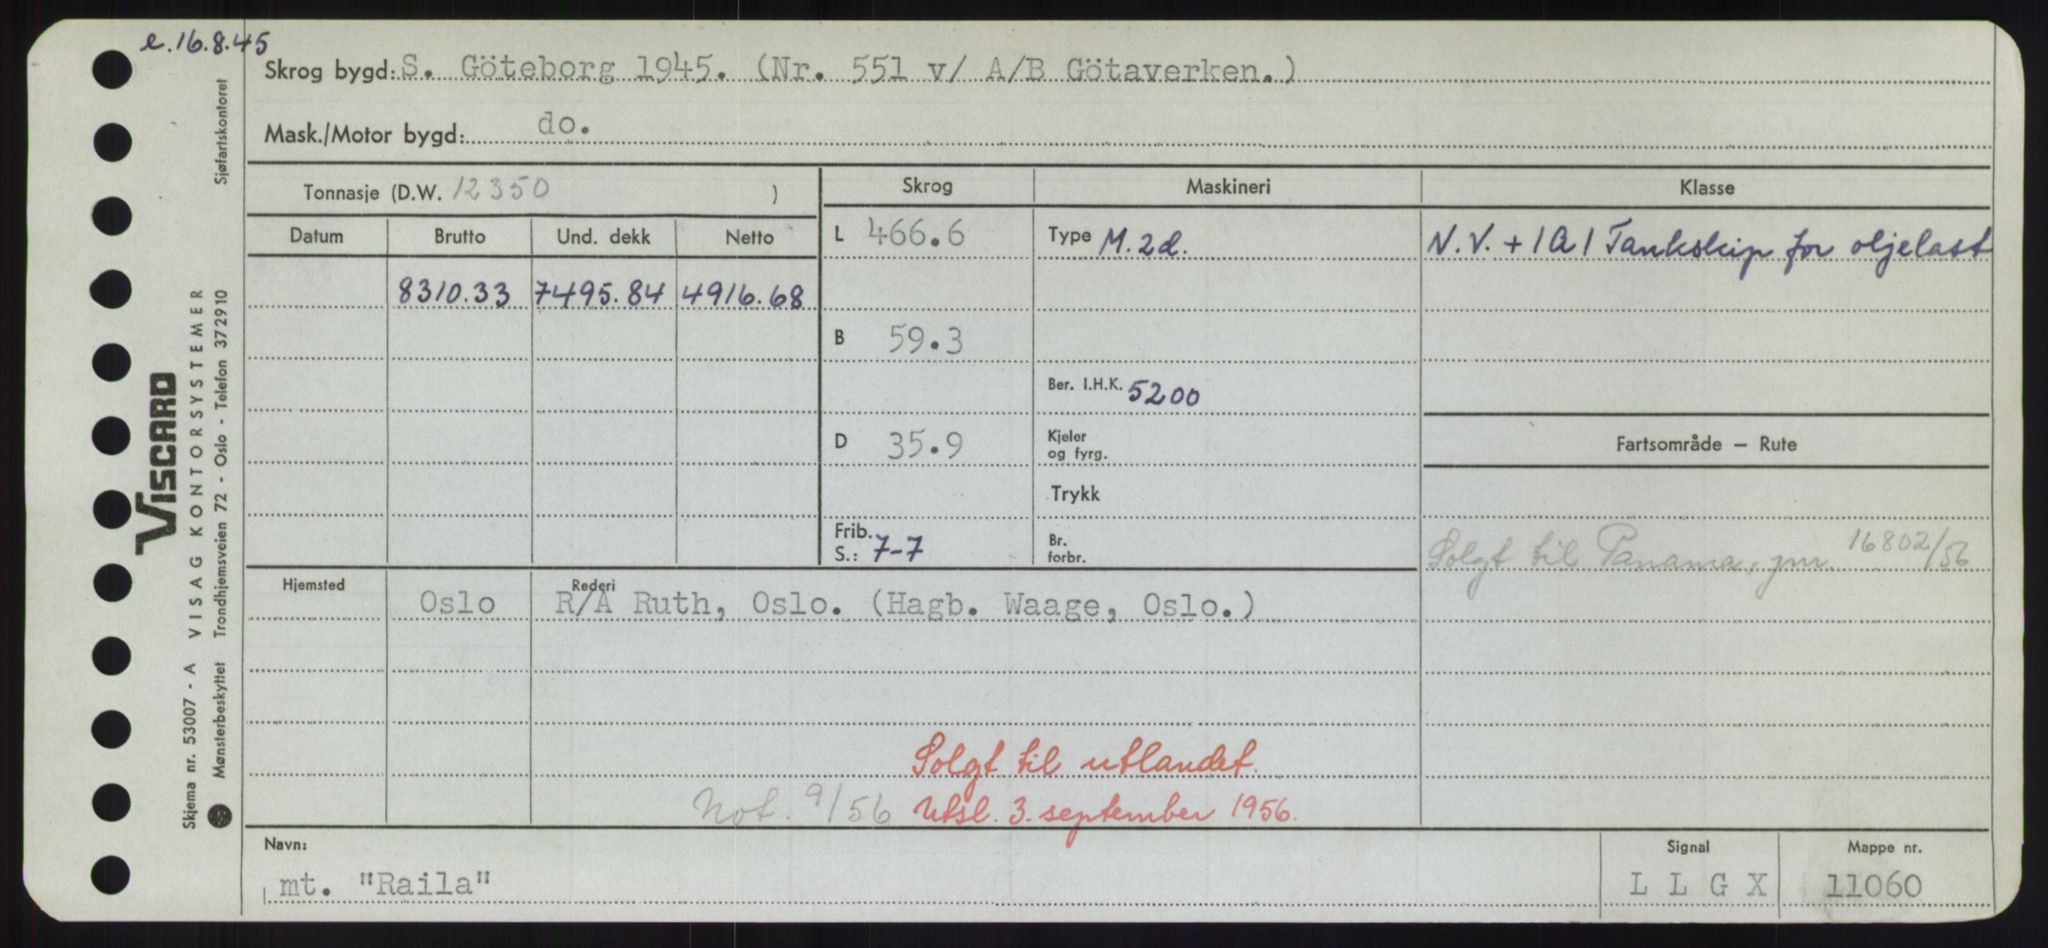 e.16.8.45
Skrog bygd: S. Göteborg 1945. (Nr. 551 v/ A/B Götaverken.)
Mask./Motor bygd: do.
Tonnasje (D.W. 12350 )
Skrog
Maskineri
Klasse
Datum Brutto Und. dekk Netto
8310.33 7495.84 4916.68
L 466.6
B 59.3
D 35.9
Frib.
S.: 7-7
Type M.2d.
Ber. I.H.K. 5200
Kjeler
og fyrg.
Trykk
Br.
forbr.
N.V. + 1A1 Tankskip for oljelast
Fartsområde — Rute
Solgt til Panama, jnr. 16802/56
Hjemsted Rederi
Oslo R/A Ruth, Oslo. (Hagb. Waage, Oslo.)
Solgt til utlandet.
Not. 9/56 Utsl. 3. september 1956.
Navn: Signal Mappe nr.
mt. "Raila" L L G X 11060
Viscard
VISAG KONTORSYSTEMER
Skjema nr. 53007 - A
Mønsterbeskyttet Trondhjemsveien 72 - Oslo - Telefon 372910 Sjøfartskontoret